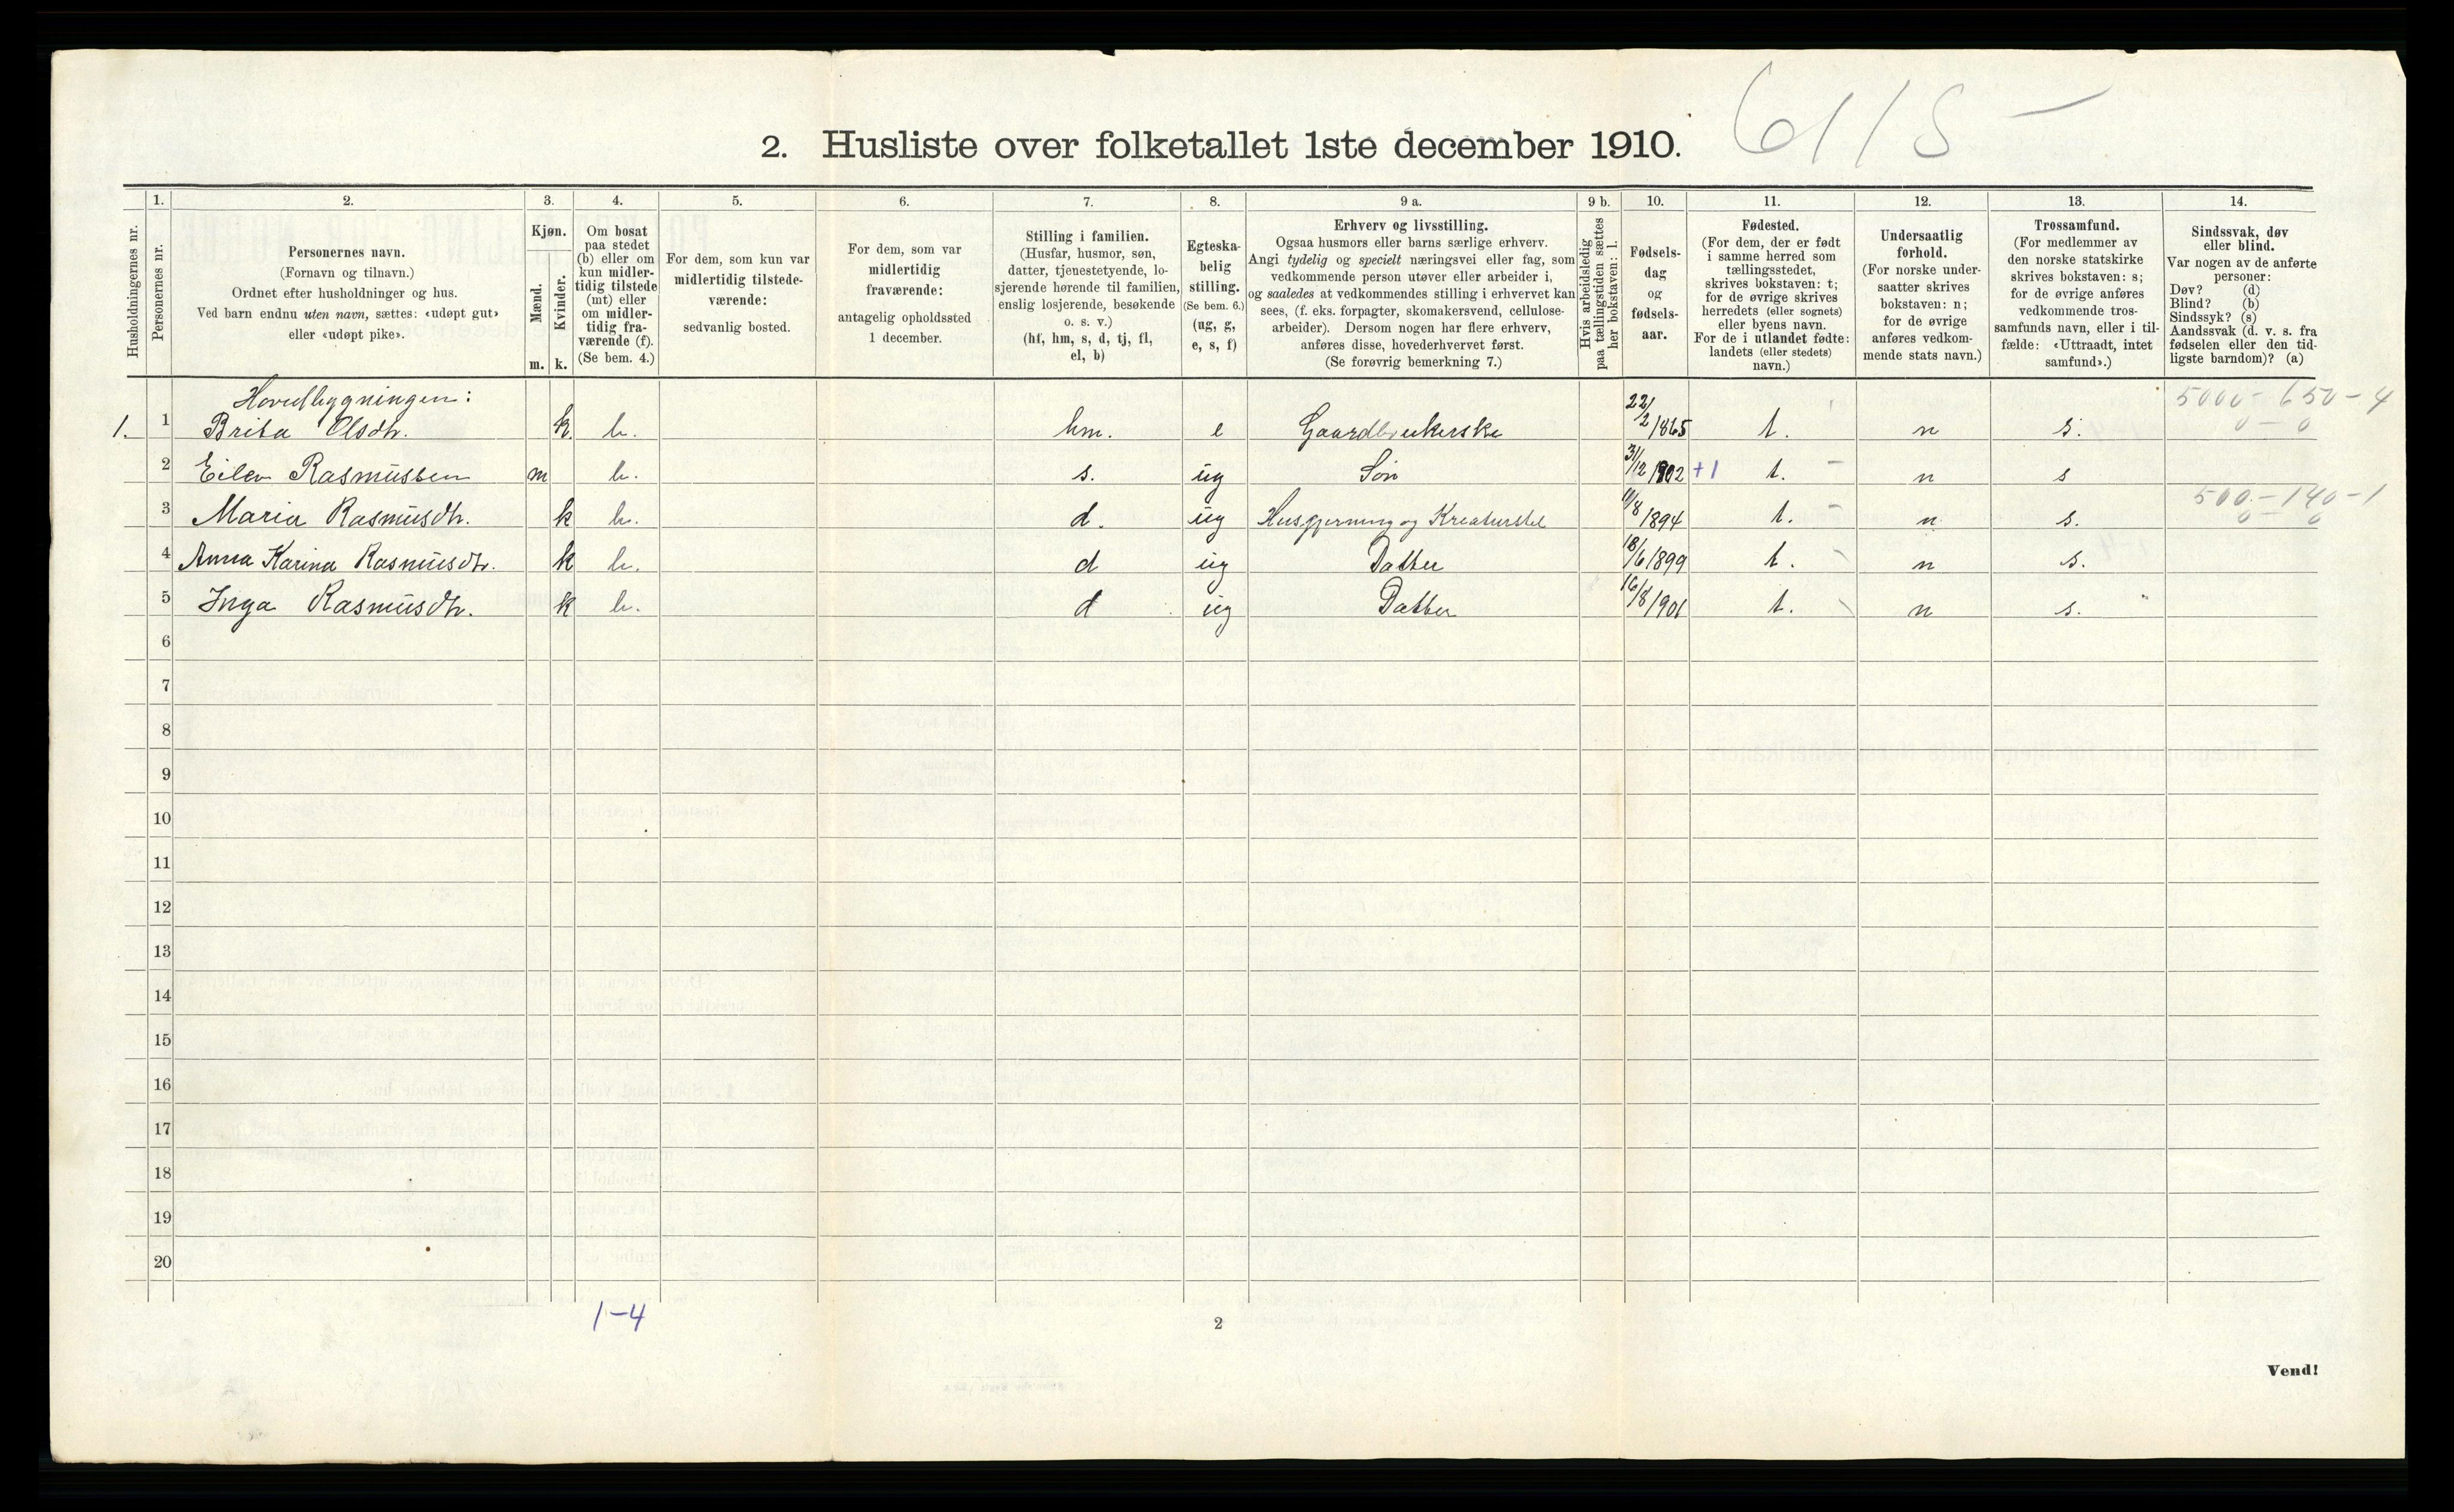 6115 -
2. Husliste over folketallet 1ste december 1910.
Husholdningernes nr.
1.
Personernes nr.
2.
Personernes navn.
(Fornavn og tilnavn.)
Ordnet efter husholdninger og hus.
Ved barn endnu uten navn, sættes: «udøpt gut»
eller «udøpt pike».
3.
Kjøn.
Mænd.
Kvinder.
m. k.
4.
Om bosat
paa stedet
(b) eller om
kun midler-
tidig tilstede
(mt) eller
om midler-
tidig fra-
værende (f).
(Se bem. 4.)
5.
For dem, som kun var
midlertidig tilstede-
værende:
sedvanlig bosted.
6.
For dem, som var
midlertidig
fraværende:
antagelig opholdssted
1 december.
7.
Stilling i familien.
(Husfar, husmor, søn,
datter, tjenestetyende, lo-
sjerende hørende til familien,
enslig losjerende, besøkende
o. s. v.)
(hf, hm, s, d, tj, fl,
el, b)
8.
Egteska-
belig
stilling.
(Se bem. 6.)
(ug, g,
e, s, f)
9 a.
Erhverv og livsstilling.
Ogsaa husmors eller barns særlige erhverv.
Angi tydelig og specielt næringsvei eller fag, som
vedkommende person utøver eller arbeider i,
og saaledes at vedkommendes stilling i erhvervet kan
sees, (f. eks. forpagter, skomakersvend, cellulose-
arbeider). Dersom nogen har flere erhverv,
anføres disse, hovederhvervet først.
(Se forøvrig bemerkning 7.)
9 b.
Hvis arbeidsledig
paa tællingstiden sættes
her bokstaven: l.
10.
Fødsels-
dag
og
fødsels-
aar.
11.
Fødested.
(For dem, der er født
i samme herred som
tællingsstedet,
skrives bokstaven: t;
for de øvrige skrives
herredets (eller sognets)
eller byens navn.
For de i utlandet fødte:
landets (eller stedets)
navn.)
12.
Undersaatlig
forhold.
(For norske under-
saatter skrives
bokstaven: n;
for de øvrige
anføres vedkom-
mende stats navn.)
13.
Trossamfund.
(For medlemmer av
den norske statskirke
skrives bokstaven: s;
for de øvrige anføres
vedkommende tros-
samfunds navn, eller i til-
fælde: «Uttraadt, intet
samfund».)
14.
Sindssvak, døv
eller blind.
Var nogen av de anførte
personer:
Døv? (d)
Blind? (b)
Sindssyk? (s)
Aandssvak (d. v. s. fra
fødselen eller den tid-
ligste barndom)? (a)
Hovedbygningen:
5000 - 650 - 4
0 - 0
1. 1 Brita Olsdtr. k b. hm. e Gaardbrukerske 22/2 1865 t. n s.
2 Eilev Rasmussen m b. s. ug Søn 31/12 1902 +1 t. - n s
500 - 140 - 1
0 - 0
3 Maria Rasmusdtr. k b. d. ug Husgjerning og Kreaturstel 11/8 1894 t. - n s.
4 Anna Karina Rasmusdtr. k b. d ug Datter 18/6 1899 t. n s.
5 Inga Rasmusdtr. k b. d ug Datter 16/8 1901 t. n s.
6
7
8
9
10
11
12
13
14
15
16
17
18
19
20
1-4
2
Vend!